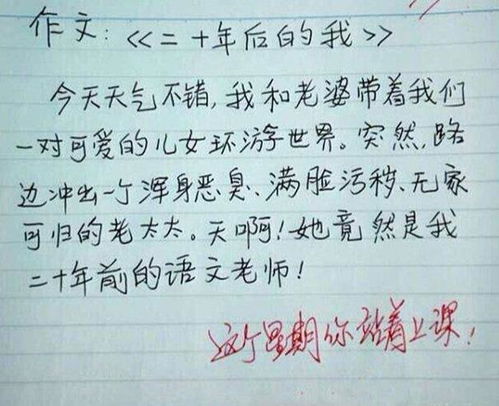 作文:《二十年后的我》
今天天气不错,我和老婆带着我们
一对可爱的儿女环游世界。突然,路
边冲出一个浑身恶臭、满脸污秽、无家
可归的老太太。天啊!她竟然是我
二十年前的语文老师!
这个星期你站着上课!